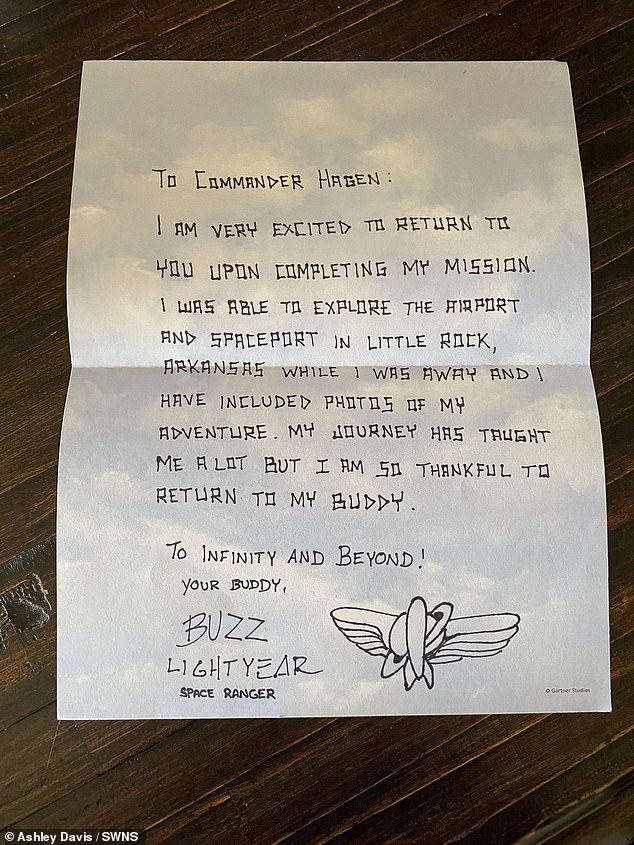 TO COMMANDER HAGEN:
I AM VERY EXCITED TO RETURN TO
YOU UPON COMPLETING MY MISSION.
I WAS ABLE TO EXPLORE THE AIRPORT
AND SPACEPORT IN LITTLE ROCK,
ARKANSAS WHILE I WAS AWAY AND I
HAVE INCLUDED PHOTOS OF MY
ADVENTURE. MY JOURNEY HAS TAUGHT
ME A LOT BUT I AM SO THANKFUL TO
RETURN TO MY BUDDY.
TO INFINITY AND BEYOND!
YOUR BUDDY,
BUZZ
LIGHTYEAR
SPACE RANGER
© Gartner Studios
© Ashley Davis / SWNS